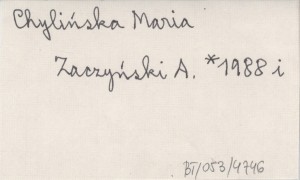 Chylińska Maria
Zaczyński A. *1988 i
BT/053/4746